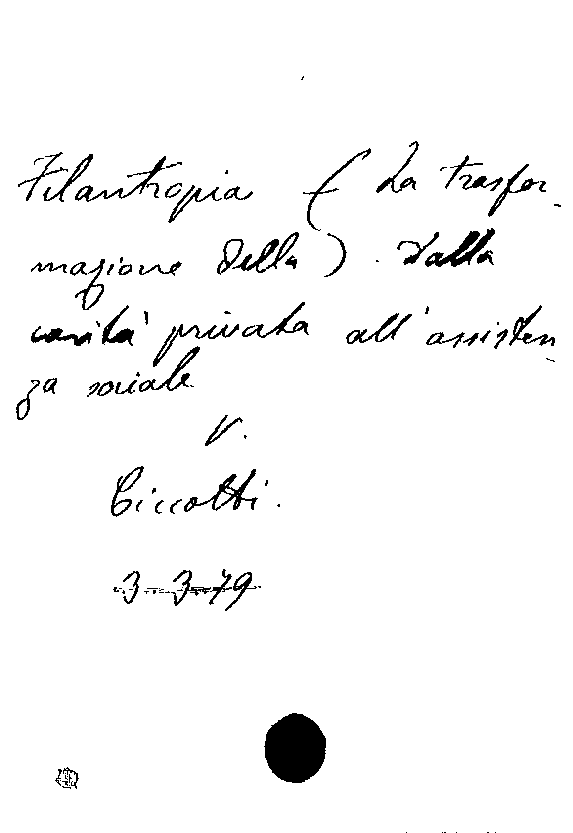 Filantropia (La trasfor-
mazione della). Dalla
carità privata all'assisten-
za sociale
V.
Ciccotti.
3-3-79